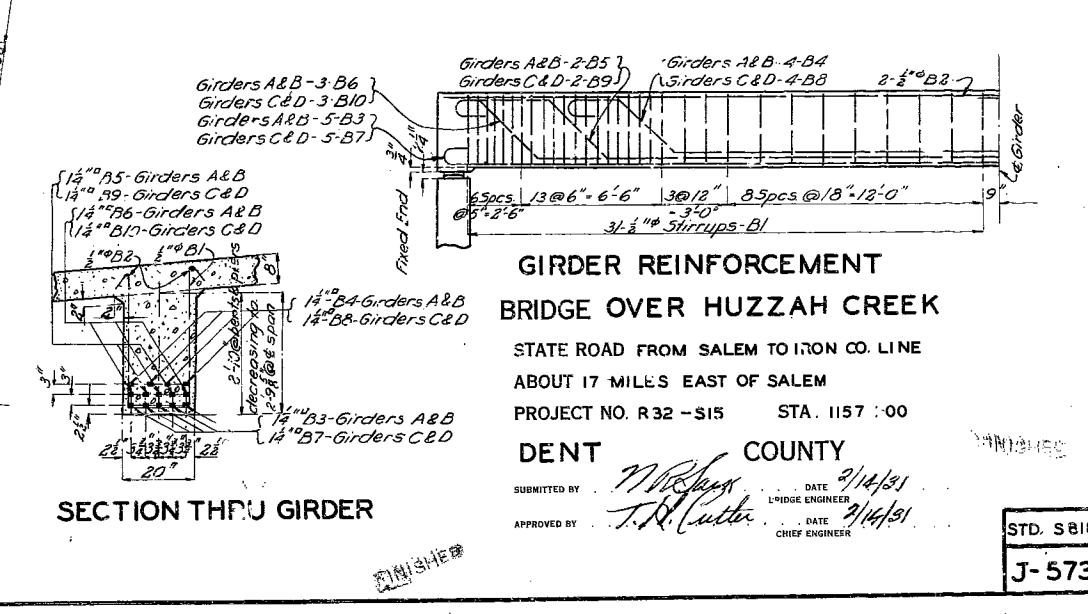 Girders A&B-3-B6
Girders C&D-3-B10
Girders A&B-5-B3
Girders C&D-5-B7
Girders A&B-2-B5
Girders C&D-2-B9
Girders A&B-4-B4
Girders C&D-4-B8
2-½"ϕB2
¾"
1¼"
Fixed End
℄ Girder
6Spcs. @5"=2'-6"
13@6"=6'-6"
3@12" =3'-0"
8Spcs.@18"=12'-0"
9"
31-½"ϕ Stirrups-B1
1¼"□B5-Girders A&B
1¼"□B9-Girders C&D
1¼"□B6-Girders A&B
1¼"□B10-Girders C&D
½"ϕB2
½"ϕB1
8"
1¼"□B4-Girders A&B
1¼"□B8-Girders C&D
2'-10@bents&piers
decreasing to
3"
3"
1¼"□B3-Girders A&B
1¼"□B7-Girders C&D
2½"
2½"
20"
SECTION THRU GIRDER
GIRDER REINFORCEMENT
BRIDGE OVER HUZZAH CREEK
STATE ROAD FROM SALEM TO IRON CO. LINE
ABOUT 17 MILES EAST OF SALEM
PROJECT NO. R32-S15 STA. 1157+00
DENT COUNTY
SUBMITTED BY DATE 2/14/31
BRIDGE ENGINEER
APPROVED BY T.H. Cutler DATE 2/14/31
CHIEF ENGINEER
FINISHED
FINISHED
STD. S818
J-573